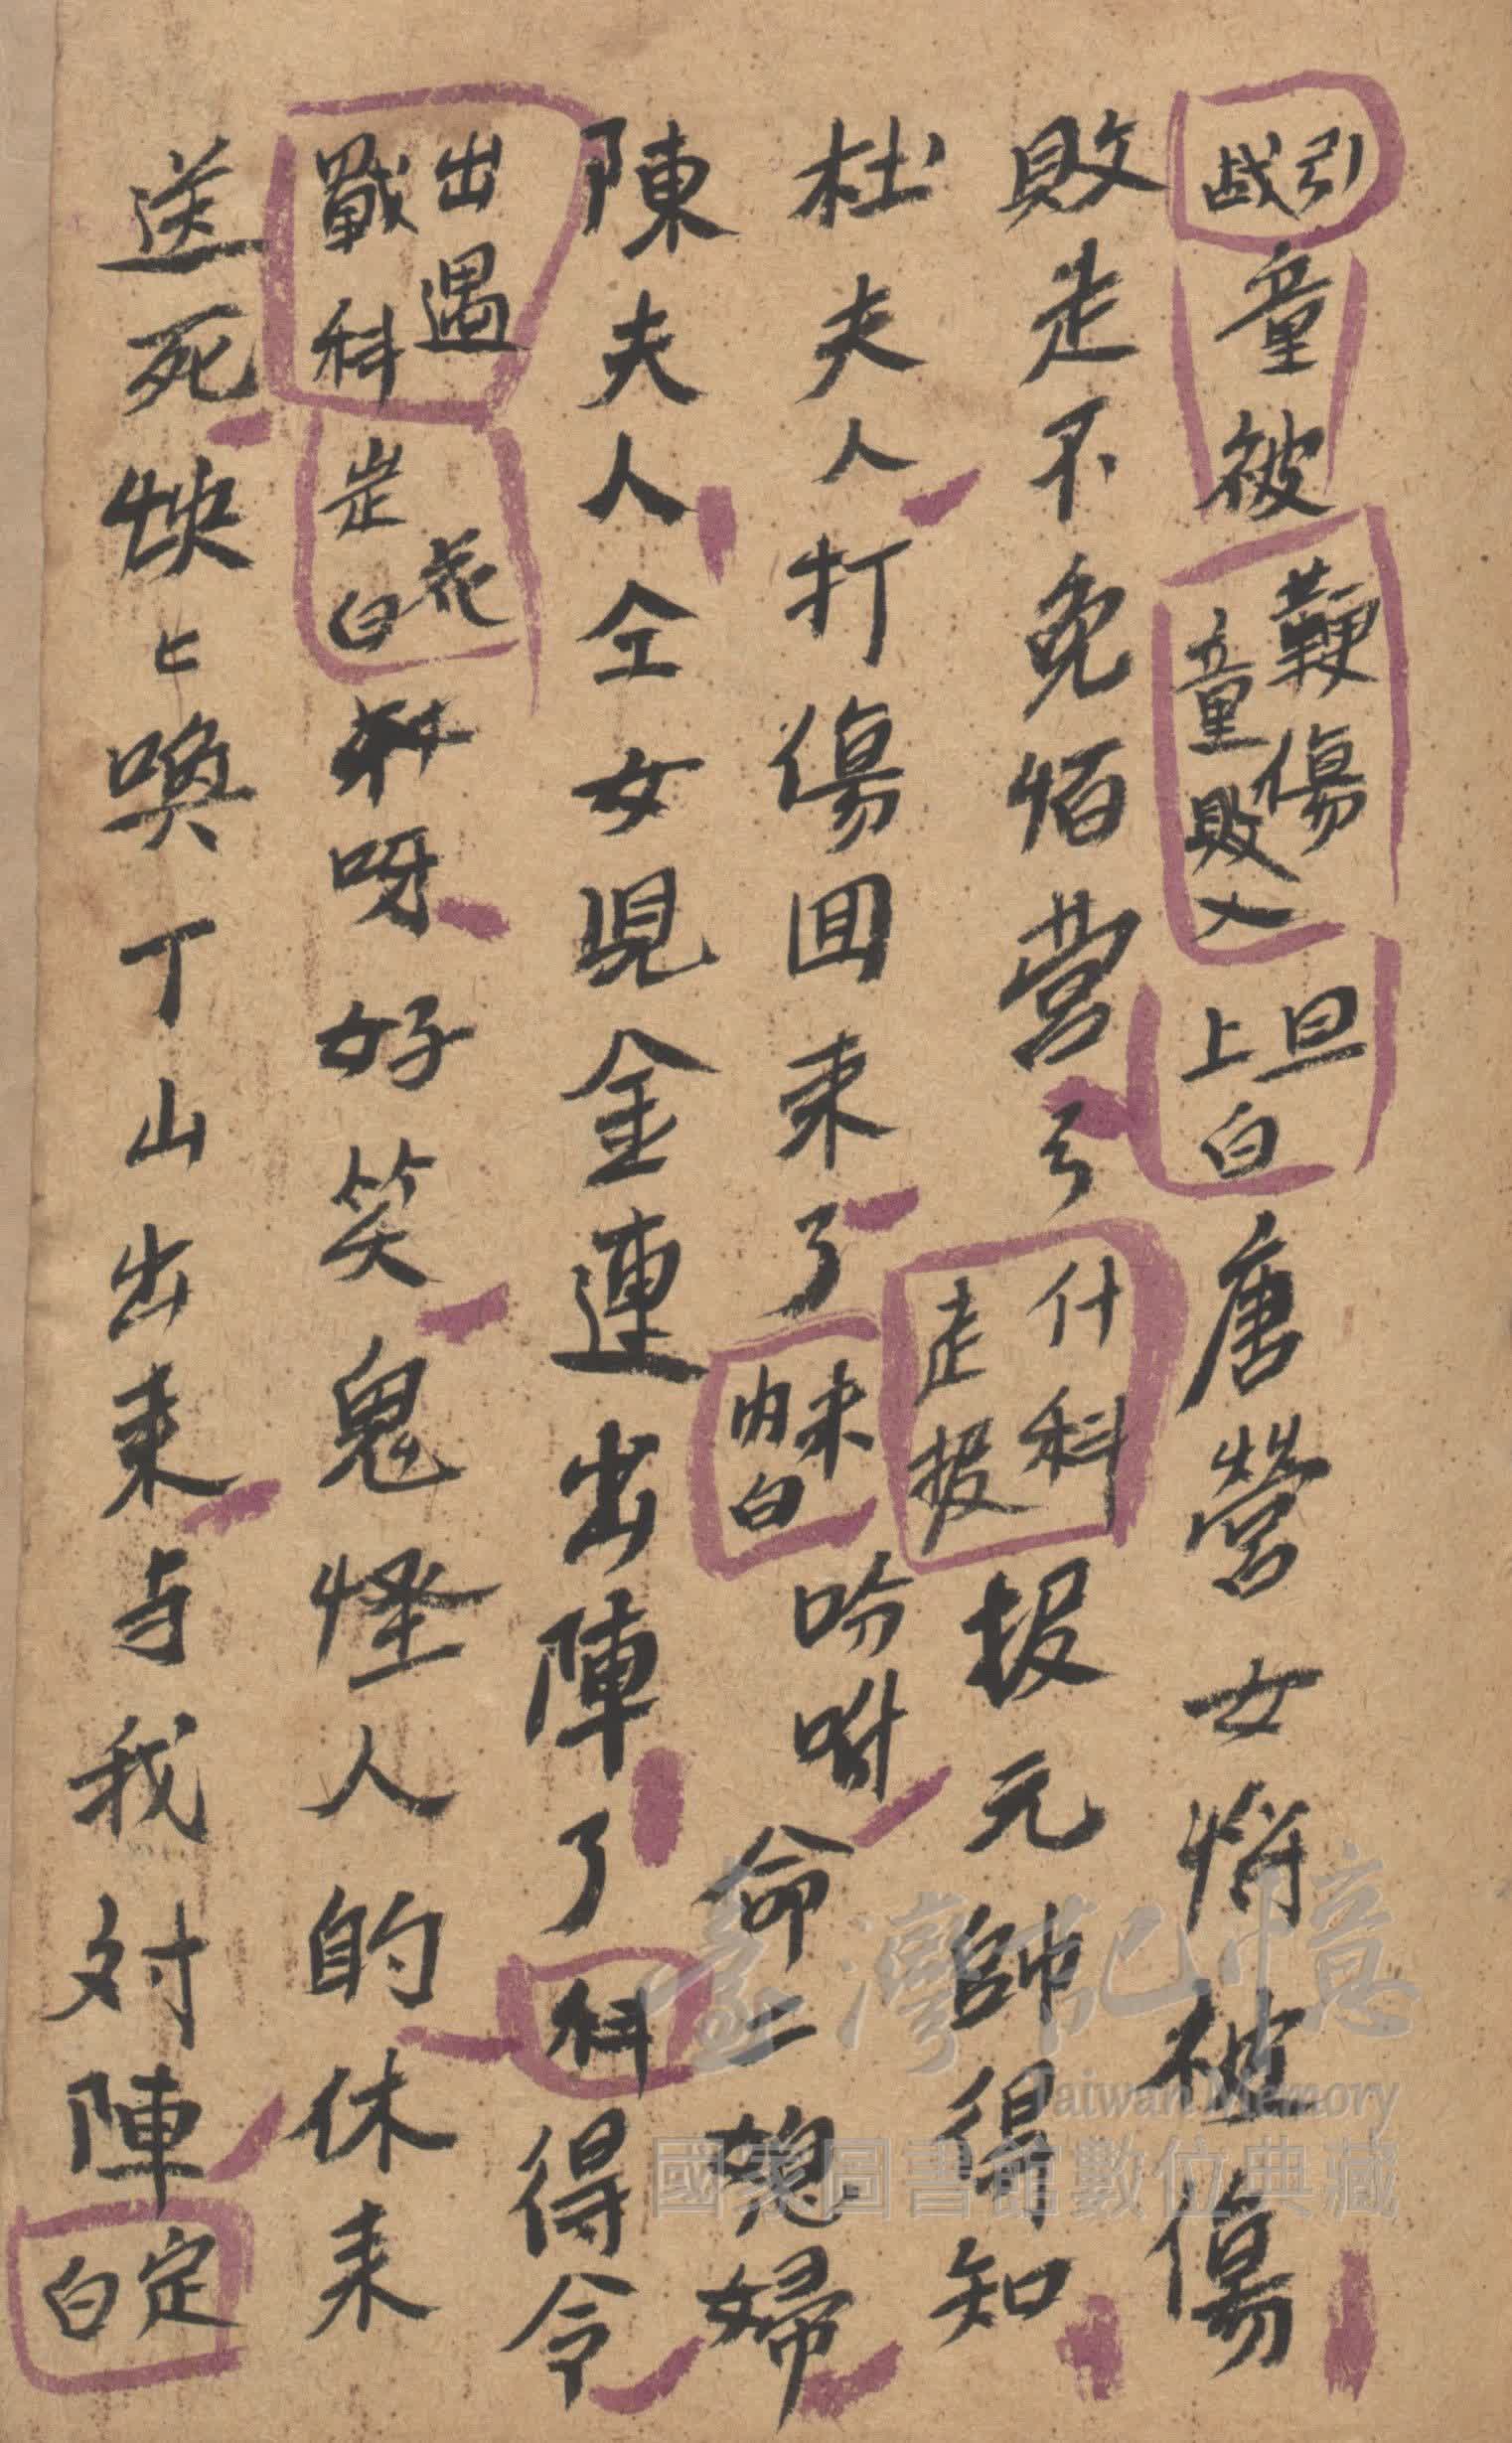 引战童被鞭傷童敗入旦上白唐營女將被傷
敗走不免怕营兮什科走报报元帥得知
杜夫人打傷囬来了来内白吩咐命二媳婦
陳夫人仝女児金連出陣了科得令
出遇戰科花白呀好笑鬼怪人的休来
送死快〻喚丁山出来与我对陣定白
臺灣記憶
Taiwan Memory
國家圖書館數位典藏